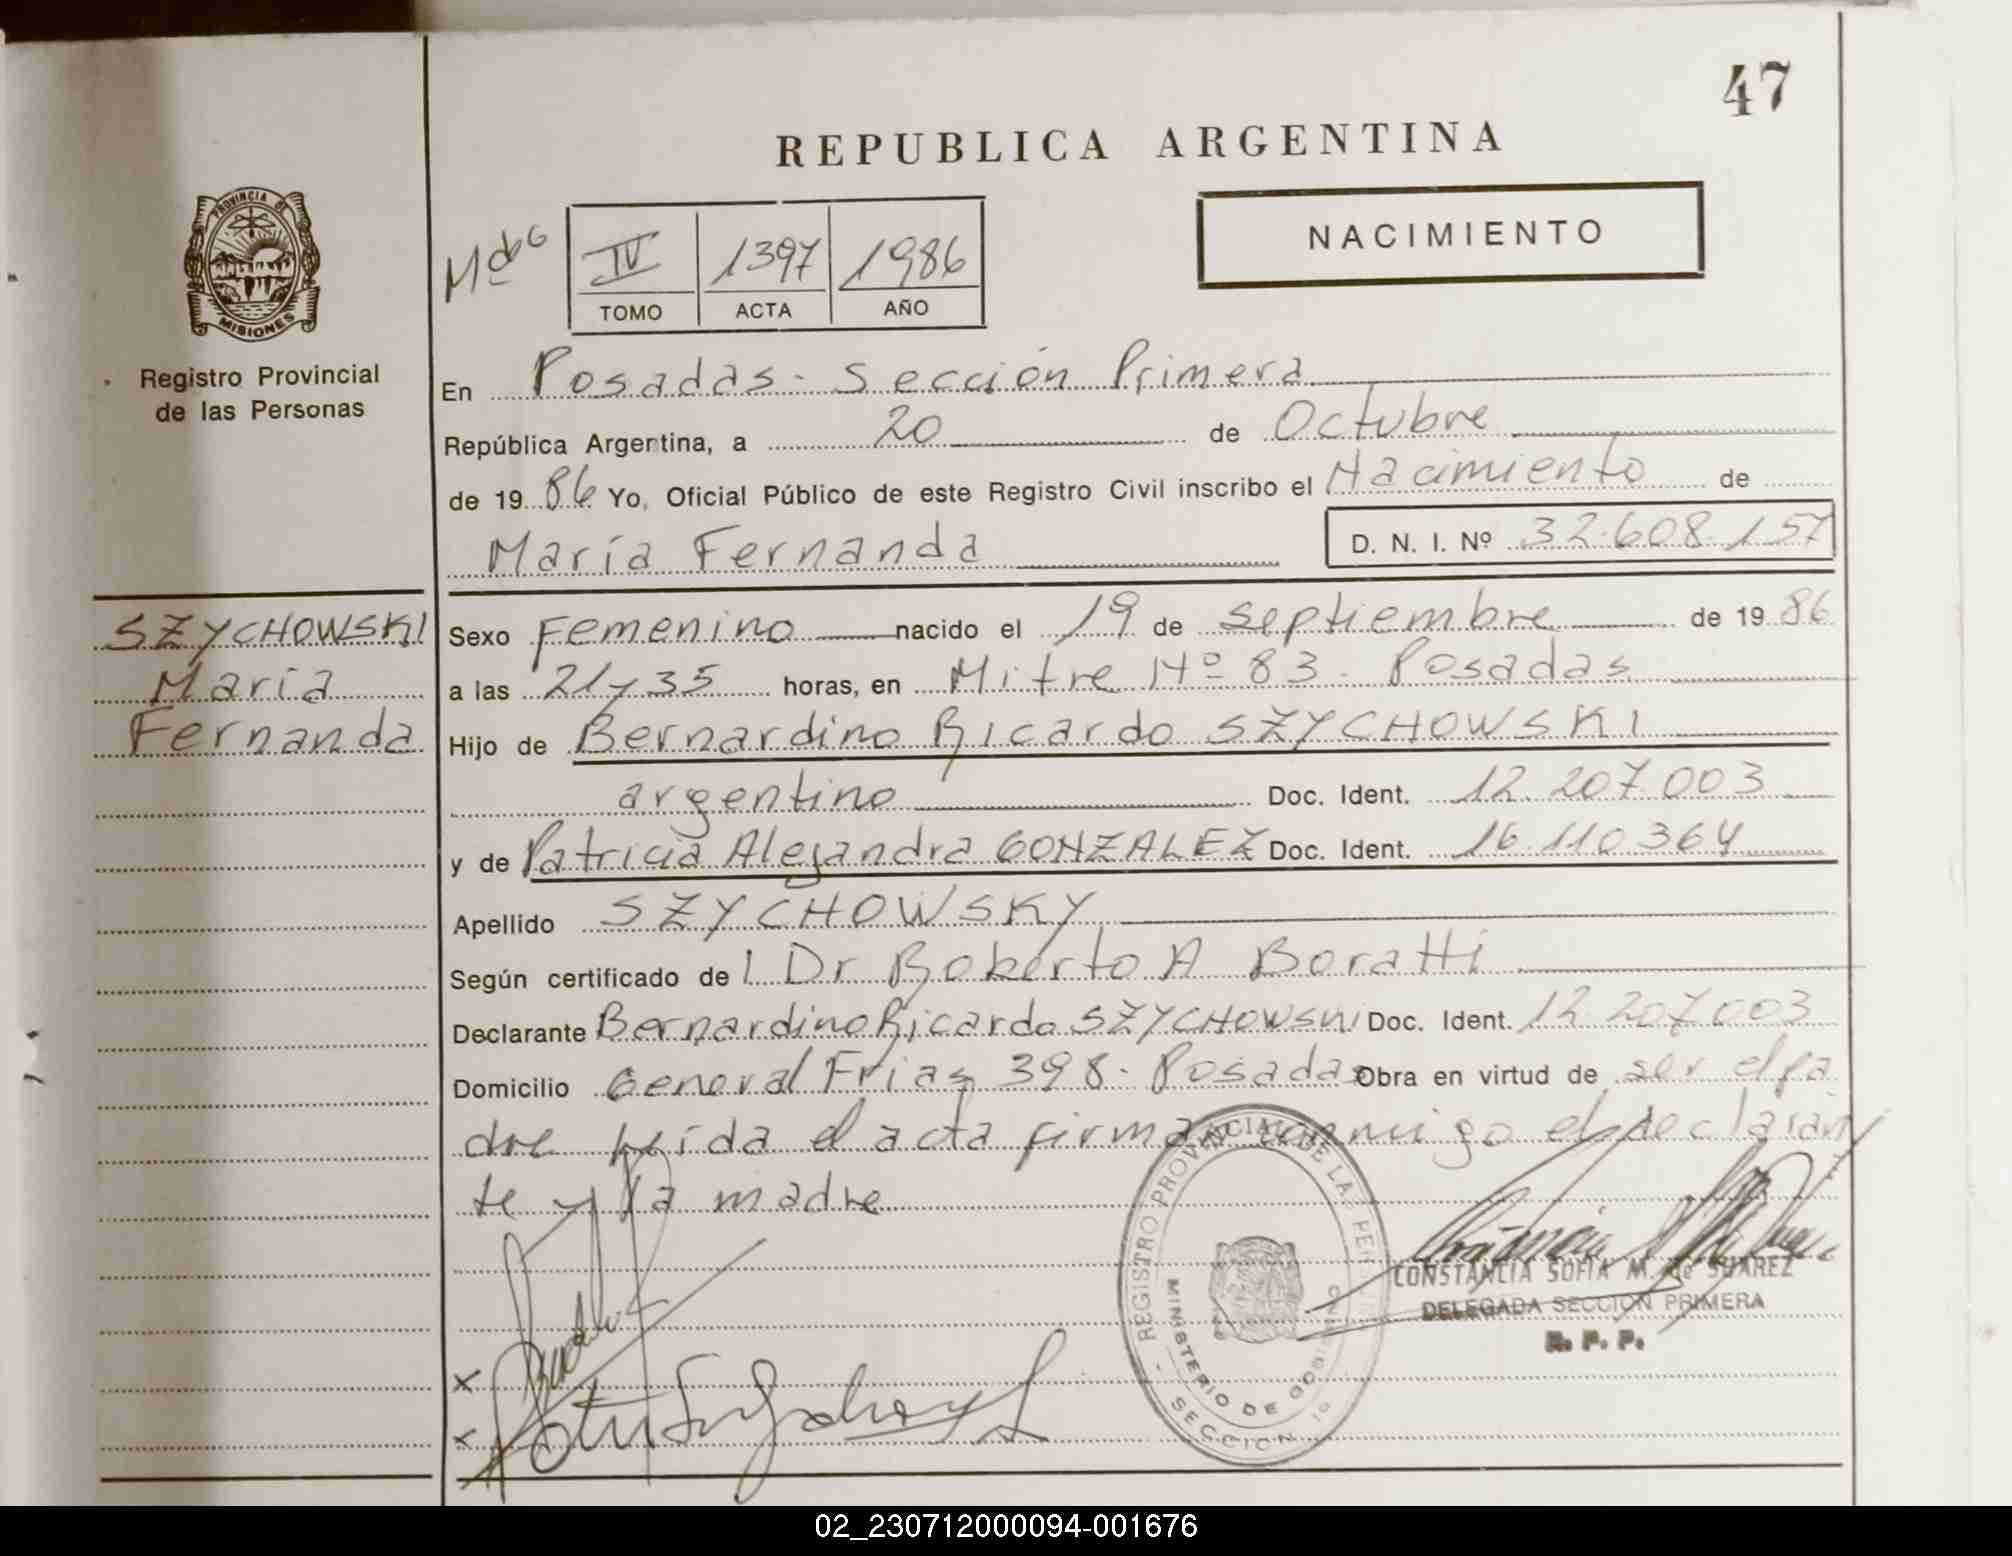 47
REPUBLICA ARGENTINA
PROVINCIA DE
MISIONES
Registro Provincial
de las Personas
IV 1397 1986
TOMO ACTA AÑO
NACIMIENTO
En Posadas - Sección Primera
República Argentina, a 20 de Octubre
de 1986 Yo, Oficial Público de este Registro Civil inscribo el Nacimiento de
María Fernanda D. N. I. Nº 32.608.157
SZYCHOWSKI
María
Fernanda
Sexo Femenino nacido el 19 de Septiembre de 1986
a las 21 y 35 horas, en Mitre Nº 83 - Posadas
Hijo de Bernardino Ricardo SZYCHOWSKI
argentino Doc. Ident. 12.207.003
y de Patricia Alejandra GONZALEZ Doc. Ident. 16.110.364
Apellido SZYCHOWSKY
Según certificado de l Dr Roberto A Boratti
Declarante Bernardino Ricardo SZYCHOWSKI Doc. Ident. 12.207.003
Domicilio General Frias 398 - Posadas Obra en virtud de ser el pa
dre leída el acta firma conmigo el declaran
te y la madre
REGISTRO PROVINCIAL DE LAS PER
MINISTERIO DE GOBIERNO
SECCION 1º
CONSTANCIA SOFIA M. de SUAREZ
DELEGADA SECCION PRIMERA
R. P. P.
x
x
02_230712000094-001676